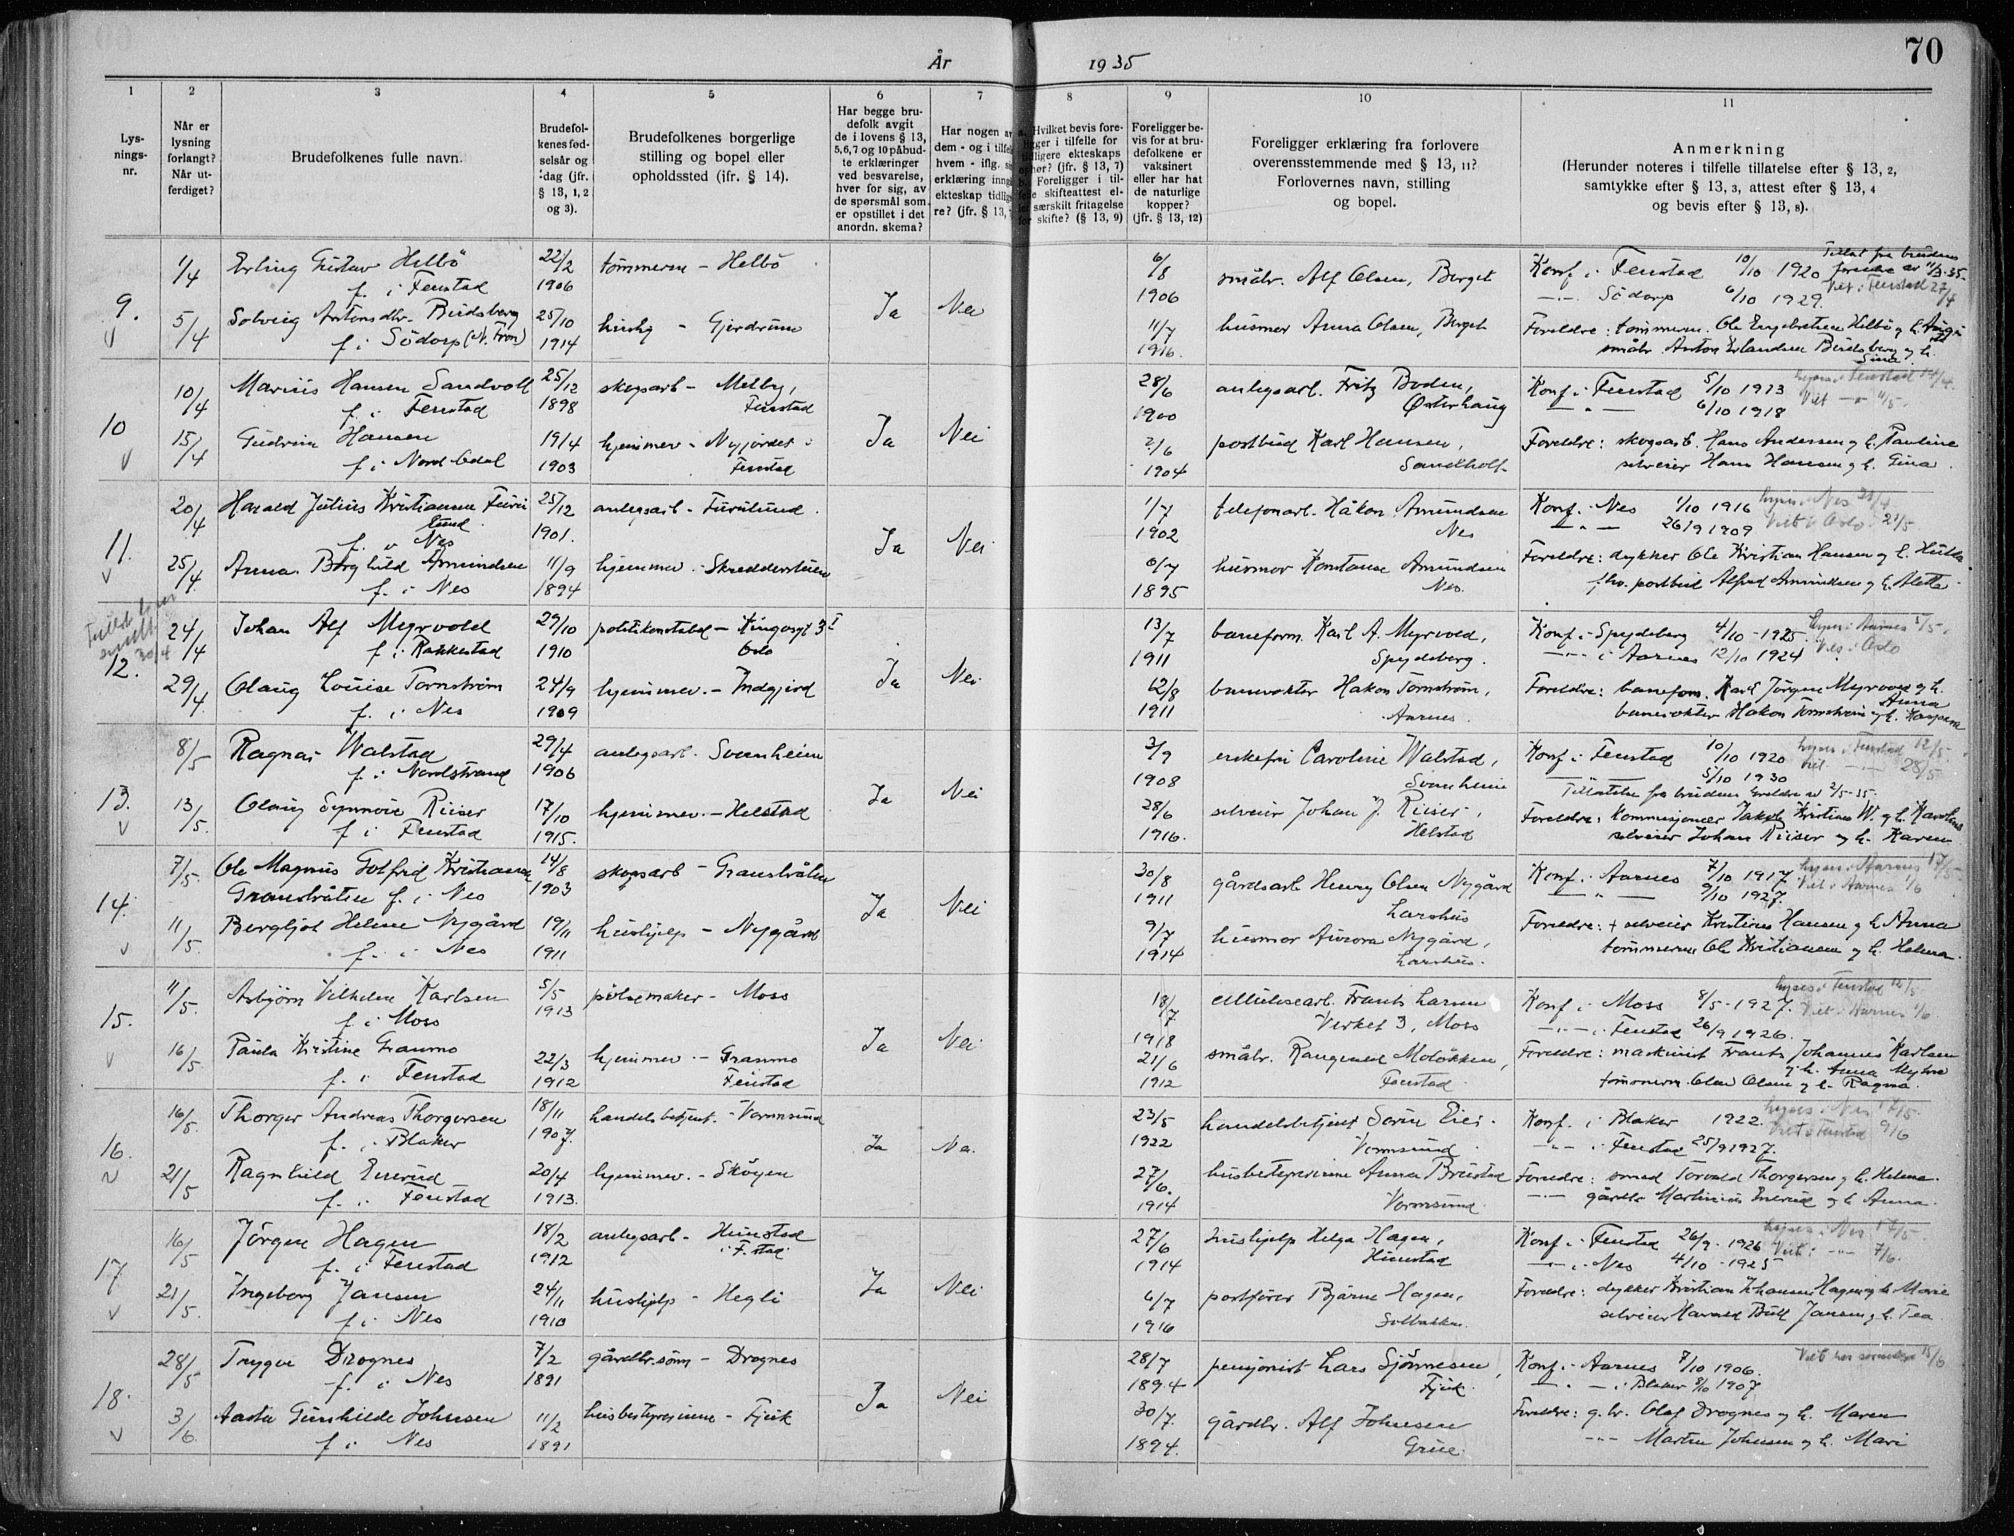 År 1935
70
1 2 3 4 5 6 7 8 9 10 11
Lysningsnr.
Når er lysning forlangt? Når utferdiget?
Brudefolkenes fulle navn.
Brudefolkenes fødselsår og -dag (jfr. § 13, 1, 2 og 3).
Brudefolkenes borgerlige stilling og bopel eller opholdssted (ifr. § 14).
Har begge brudefolk avgit de i lovens § 13, 5, 6, 7 og 10 påbudte erklæringer ved besvarelse, hver for sig, av de spørsmål som er opstillet i det anordn. skema?
Har nogen av dem - og i tilfelle hvem - iflg.
erklæring inngått ekteskap tidligere? (jfr. § 13,
Hvilket bevis foreligger i tilfelle for tidligere ekteskaps ophør? (jfr. § 13, 7)
Foreligger i tilfelle skifteattest eller særskilt fritagelse for skifte? (§ 13, 9)
Foreligger bevis for at brudefolkene er vaksinert eller har hat de naturlige kopper? (jfr. § 13, 12)
Foreligger erklæring fra forlovere overensstemmende med § 13, 11? Forlovernes navn, stilling og bopel.
Anmerkning
(Herunder noteres i tilfelle tillatelse efter § 13, 2, samtykke efter § 13, 3, attest efter § 13, 4 og bevis efter § 13, 8).
9. 1/4 Erling Gustav Helbö 22/2 1906 tömmerm - Helbö
f. i Fenstad
5/4 Solveig Antonsdtr. 25/10 1914 hushj - Gjerdrum
f. i Södorp (N. Fron)
Ja Nei
6/8 1906 småbr. Alf Olsen, Berget
11/7 1916. husmor Anna Olsen, Berget
Konf. i Fenstad 10/10 1920
Södorp 6/10 1929.
Viet i Fenstad 27/4
Foreldre: tömmerm. Ole Engebretsen Helbö og h.
småbr. Anton Erlandsen og h.
10 10/4 Marius Hansen Sandvoll 25/12 1898 skogsarb - Melby, Fenstad
f. i Fenstad
15/4 Gudrun Hansen 19/4 1903 hjemmev - Nygjordet Fenstad
f. i Nord Odal
Ja Nei
28/6 1900 anlegsarb. Fritz Boden, Österhaug
2/6 1904 postbud Karl Hansen, Sandholt
Konf. i Fenstad 5/10 1913
6/10 1918
Foreldre: skogsarb. Hans Andersen og h. Pauline
selveier Hans Hansen og h. Gina.
11. 20/4 Harald Julius Kristiansen Furulund 25/12 1901. anlegsarb - Furulund
f. i Nes
25/4 Anna Borghild Amundsen 11/9 1894 hjemmev. - Skredderstuen
f. i Nes
Ja Nei
1/7 1902 telefonarb. Håkon Amundsen Nes
6/7 1895 husmor Konstanse Amundsen Nes.
Konf. i Nes 1/10 1916
26/9 1909
Foreldre: dykker Ole Kristian Hansen og h. Hulda
fhv. postbud Alfred Amundsen og h. Alette
12. 24/4 Johan Alf Myrvold 29/10 1910 politikonstabel - Kingosgt 3 I Oslo
f. i Rakkestad
29/4 Olaug Louise Tornström 24/9 1909 hjemmev. - Indgjerd
f. i Nes
Ja Nei
13/7 1911 baneform. Karl A. Myrvold, Spydeberg.
12/8 1911 banevokter Hakon Tornström, Aarnes.
Konf. i Spydeberg 4/10 - 1925
i Aarnes 12/10 1924
Foreldre: baneform. Karl Jörgen Myrvold og h. Anna
banevokter Hakon Tornström og h. Kaspara
13. 8/5 Ragnar Walstad 29/4 1906 anlegsarb. Svanheim
f. i Nordstrand
13/5. Olaug Synnöve Riiser 17/10 1915. hjemmev. - Helstad
f. i Fenstad
Ja Nei
3/9 1908 enkefru Caroline Walstad, Svanheim
28/6 1916. selveier Johan J. Riiser, Helstad
Konf. i Fenstad 10/10 1920
5/10 1930
Tillatelse fra brudens foreldre av 2/5-35.
Foreldre: Kommisjonær Jakob Kristian W. og h. Karoline
selveier Johan Riiser og h. Karen
14. 7/5. Ole Magnus Gotfred Kristiansen 14/8 1903 skogsarb - Granstråten
Granstråten f. i Nes
11/5. Bergljot Helene Nygård 19/11 1911 hushjelp - Nygård
f. i Nes
Ja Nei
30/8 1911 gårdsarb Henry Olsen Nygård Larshus
9/7 1914 husmor Aurora Nygård, Larshus.
Konf. i Aarnes 7/10 1917
9/10 1927.
Foreldre: + selveier Kristines Hansen og h. Anna
tömmerm Ole Kristiansen og h. Helena.
15. 11/5. Asbjörn Vilhelm Karlsen 5/5 1913 pölsemaker - Moss
f. i Moss
16/5 Paula Kristine Granmo 22/3 1912 hjemmev. - Granmo Fenstad
f. i Fenstad
Ja Nei
18/7 1918 cellulosearb. Frants Larsen Verket 3, Moss
21/6 1912 småbr. Rangmod Molökken, Fenstad
Konf. i Moss 8/5 - 1927.
i Fenstad 26/9 1926.
Foreldre: maskinist Frants Johannes Karlsen og h. Anna
tömmerm. Olav Olsen og h. Ragna
16. 16/5. Thorger Andreas Thorgersen 18/11 1907. handelsbetjent. - Vormsund
f. i Blaker
21/5 Ragnhild Enerud 20/4 1913. hjemmev. - Skogen
f. i Fenstad
Ja Nei
23/5 1922 handelsbetjent Sören Eier. Vormsund
27/6. 1914 husbestyrerinne Anna Bustad Vormsund.
Konf. i Blaker 1922.
i Fenstad 25/9 1927.
Foreldre: smed Torvald Thorgersen og h. Helena.
gårdbr Martinius Enerud og h. Anna.
17 16/5 Jörgen Hagen 18/2 1912 anlegsarb - Hunstad i F.stad.
f. i Fenstad
21/5. Ingeborg Jansen 24/11 1910 hushjelp - Hegli
f. i Nes
Ja Nei
27/6 1914 hushjelp Helga Hagen, Hunstad
6/7 1916 postförer Bjarne Hagen, Solbakken.
Konf. i Fenstad 26/9 - 1926
i Nes 4/10 - 1925
Foreldre: dykker Kristian Johansen Hagen og h. Marie
selveier Harald Bull Jansen og h. Tea
18. 28/5 Trygve Drognes 7/2 1891 gårdbr.sönn - Drognes
f. i Nes
3/6. Aasta Gunhilde Johnsen 11/2 1891 husbestyrerinne - Fjuk
f. i Nes
Ja Nei
28/7 1894 pensjonist Lars Sjönnesen, Fjuk.
30/7. 1894. gårdbr. Alf Johnsen Grue
Konf. i Aarnes 7/10 1906.
i Blaker 8/10 1907
Foreldre: g.br. Olaf Drognes og h. Maren
Martin Johnsen og h. Mari